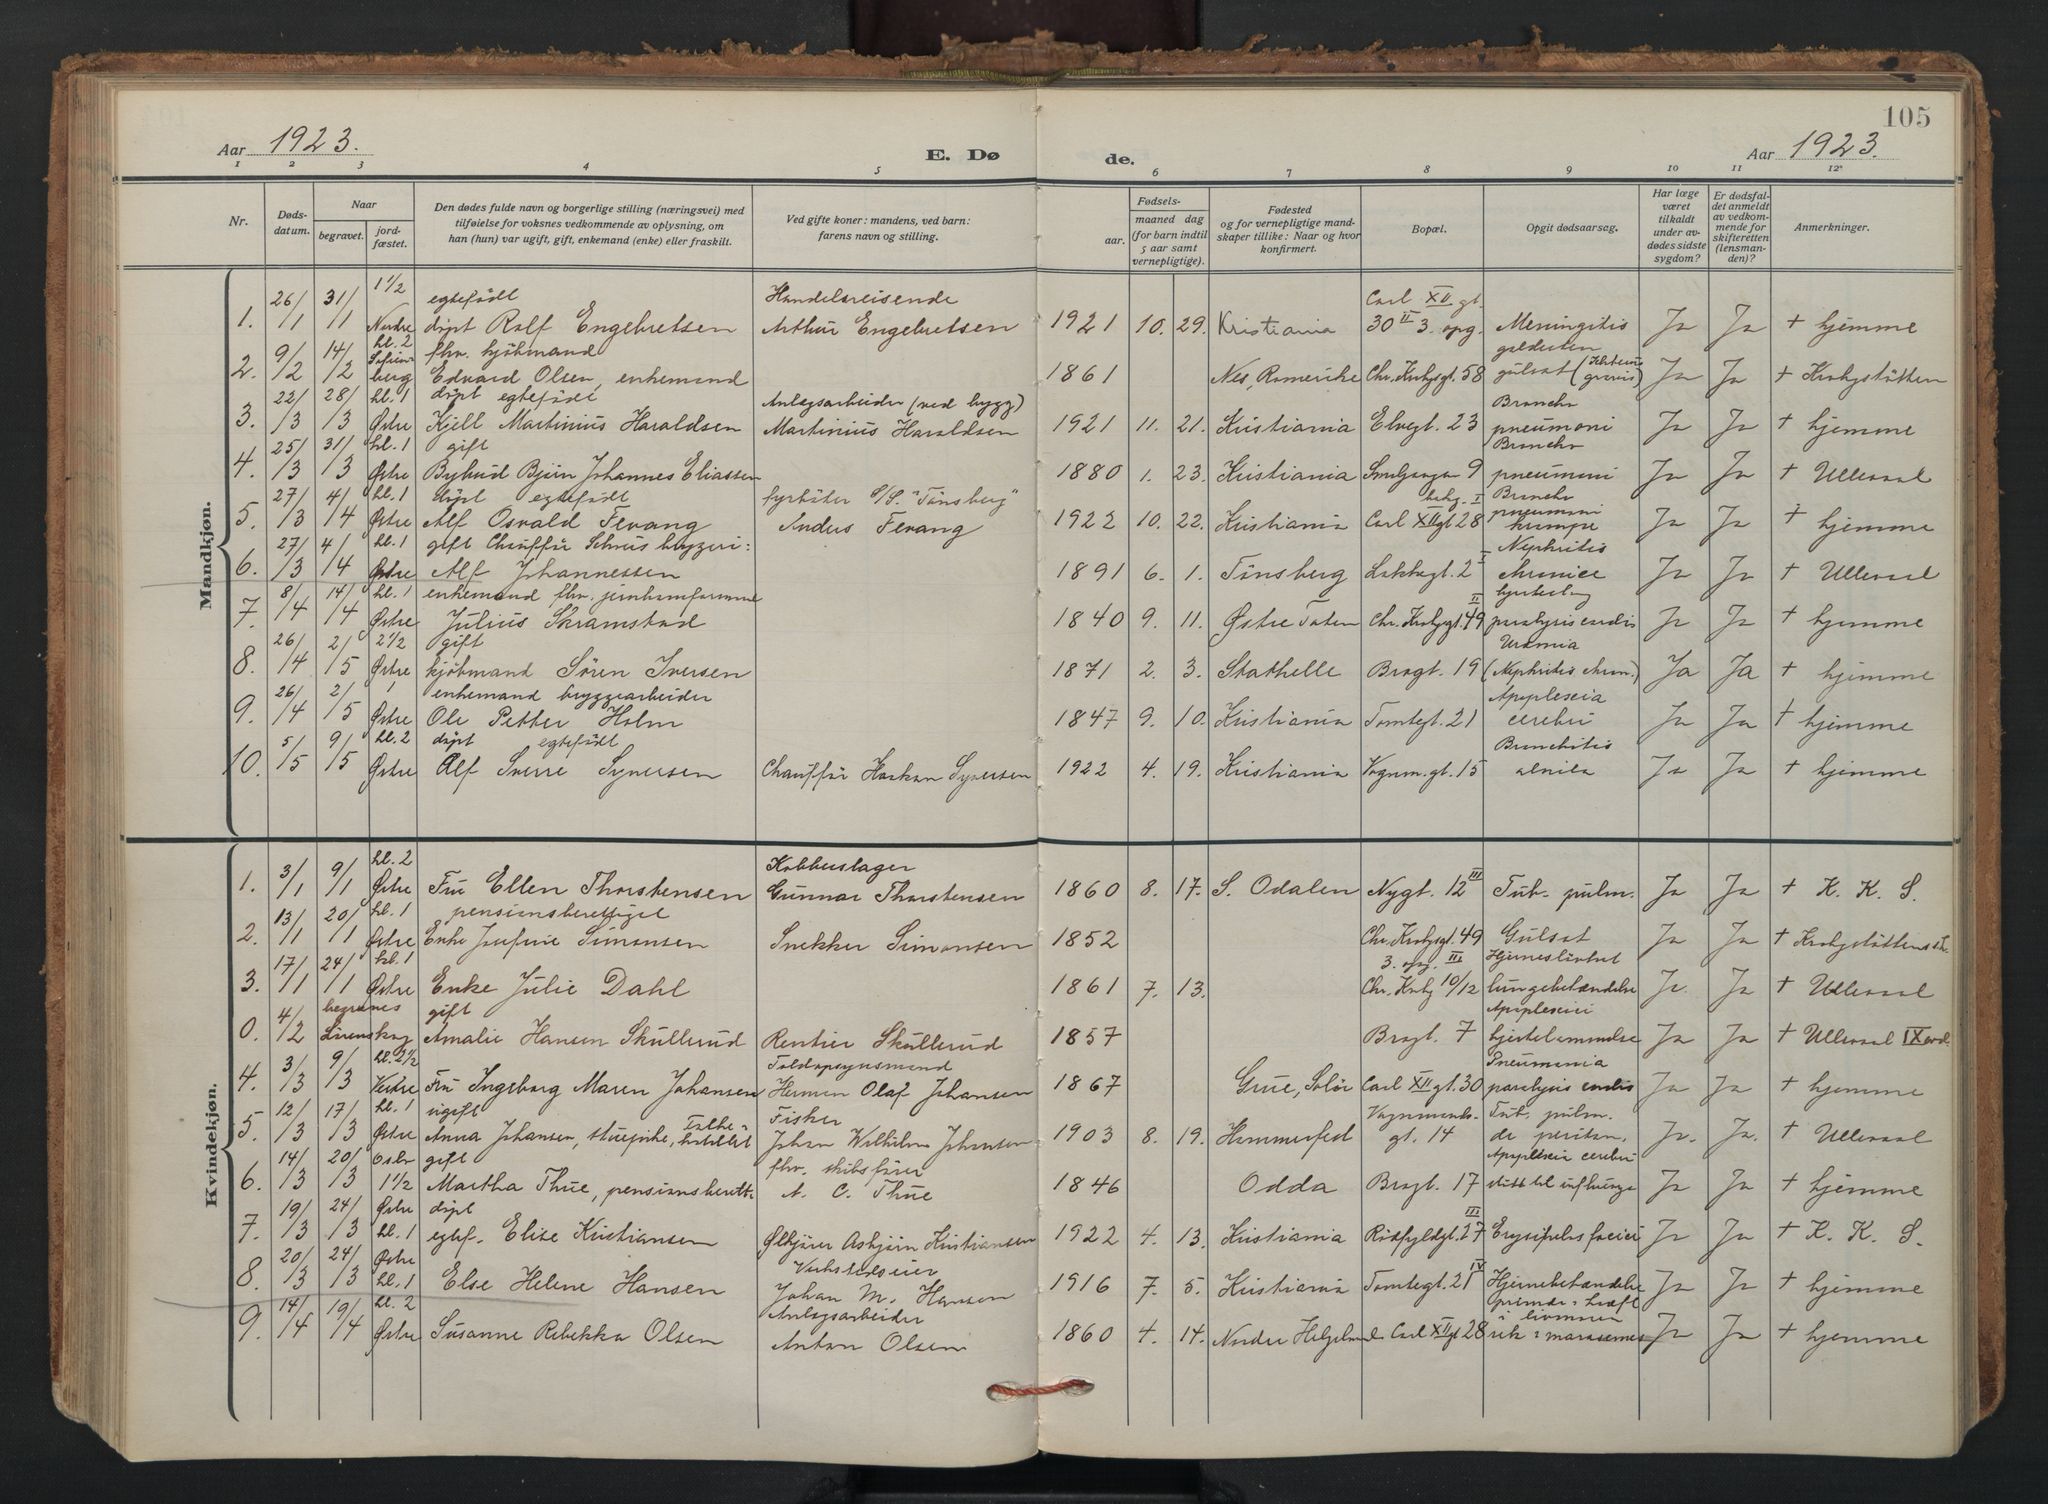 105
Aar 1923.
E. Døde.
Aar 1923.
1 2 3 4 5 6 7 8 9 10 11 12
Nr.
Døds-datum.
Naar
begravet.
jord-fæstet.
Den dødes fulde navn og borgerlige stilling (næringsvei) med tilføielse for voksnes vedkommende av oplysning, om han (hun) var ugift, gift, enkemand (enke) eller fraskilt.
Ved gifte koner: mandens, ved barn: farens navn og stilling.
Fødsels-
aar.
maaned dag
(for barn indtil 5 aar samt vernepligtige).
Fødested
og for vernepligtige mand-skaper tillike: Naar og hvor konfirmert.
Bopæl.
Opgit dødsaarsag.
Har læge været tilkaldt under av-dødes sidste sygdom?
Er dødsfal-det anmeldt av vedkom-mende for skifteretten (lensman-den)?
Anmerkninger.
Mandkjøn.
1. 26/1 31/1 1 1/2 Nordre egtefødt døpt Rolf Engebretsen Handelsreisende Arthur Engebretsen 1921 10. 29. Kristiania Carl XII gt. 30 II 3. opg. Meningitis Ja Ja + hjemme
2. 9/2 14/2 kl. 2 Sofien-berg fhv. kjøbmand Edvard Olsen, enkemand 1861 Nes, Romerike Chr. Krohgsgt. 58 galdesten gulsot (Ikterus gravis) Ja Ja + Krohgstøtten
3. 22/3 28/3 kl. 1 Østre døpt egtefødt Kjell Martinius Haraldsen Anlægsarbeider (ved bygg) Martinius Haraldsen 1921 11. 21. Kristiania Elvegt. 23 Broncho pneumoni Ja Ja + hjemme
4. 25/3 31/3 kl. 1 Østre gift Bybud Bjørn Johannes Eliassen 1880 1. 23. Kristiania Smedgangen 9 Broncho pneumoni Ja Ja + Ullevaal
5. 27/3 4/4 kl. 1 Østre døpt egtefødt Alf Osvald Fevang fyrbøter S/S. "Tønsberg" Anders Fevang 1922 10. 22. Kristiania bakg. I Carl XII gt 28 Broncho pneumoni krampe Ja Ja + hjemme
6. 27/3 4/4 kl. 1 Østre gift Chauffør Schous bryggeri: Alf Johannessen 1891 6. 1. Tønsberg Lakkegt. 2 I Nephritis chronica Ja Ja + Ullevaal
7. 8/4 14/4 kl. 1 Østre enkemand fhv. jernbaneformand Julius Skramstad 1840 9. 11. Østre Toten Chr. Krohgsgt. 49 II hjerteslag paralysis cordis Ja Ja + hjemme
8. 26/4 2/5 2 1/2 Østre gift kjøbmand Søren Iversen 1871 2. 3. Stathelle Brogt. 19 Urämia (Nephritis chron.) Ja Ja + hjemme
9. 26/4 2/5 1 Østre enkemand bryggearbeider Ole Petter Holm 1847 9. 10. Kristiania Tomtegt. 21 Apoplexia cerebri Ja Ja + hjemme
10. 5/5 9/5 kl. 2 Østre døpt egtefødt Alf Sverre Syversen Chauffør Haakon Syversen 1922 4. 19. Kristiania Vognm. gt. 15 Bronchitis Ja Ja + hjemme
Kvindekjøn.
1. 3/1 9/1 kl. 2 Østre Fru Ellen Thorstensen Kobberslager Gunnar Thorstensen 1860 8. 17. S. Odalen Nygt. 12 III Tub. pulm. Ja Ja + K. K. S.
2. 13/1 20/1 kl. 1 Østre pensionsberettiget Enke Josefine Simonsen Snekker Simonsen 1852 Chr. Krohgsgt. 49 3. opg. III Gulsot Ja Ja + Krohgstøttens
3. 17/1 24/1 kl. 1 Østre Enke Julie Dahl 1861 7. 13. Chr. Krohg 10/12 Hjerneslövhet lungebetændelse Ja. Ja + Ullevaal
0. 4/2 begraves Lørenskog gift Amalie Hansen Skullerud Rentier Skullerud 1857 Brogt. 7 Apoplexi hjertelammelse Ja Ja + Ullevaal IX avd.
4. 3/3 9/3 kl. 2 1/2 Vestre Fru Ingeborg Maren Johansen Toldopsynsmand Herman Olaf Johansen 1867 Grue, Solør Carl XII gt. 30 Pneumonia paralysis cordis Ja Ja + hjemme
5. 12/3 17/3 kl. 1 Østre ugift Anna Johansen, stuepike, Falke-hotellet Fisker Johan Wilhelm Johansen 1903 8. 19. Hammerfest Vognmands-gt. 14 Tub. pulm. de periton. Ja. Ja. + Ullevaal
6. 14/3 20/3 Oslo 1 1/2 gift Martha Thue, pensionsberett. fhv. skibsfører A. C. Thue 1846 Odda Brogt. 17 Apoplexia cerebri stött til influenza Ja Ja + hjemme
7. 19/3 24/3 Østre kl. 1 døpt egtef. Elise Kristiansen Ølkjører Asbjørn Kristiansen 1922 4. 13. Kristiania Rødfyldgt. 27 III Erysipelas faciei Ja Ja + K. K. S.
8. 20/3 24/3 Østre kl. 1 Else Helene Hansen Verkstedseier Johan M. Hansen 1916 7. 5. Kristiania Tomtegt. 21 IV Hjernebetændelse Ja Ja + hjemme
9. 14/4 19/4 kl. 2 Østre Susanne Rebekka Olsen Anlægsarbeider Anton Olsen 1860 4. 14. Nordre Helgeland Carl XII gt 28 kræft i livmoren Ja Ja + hjemme